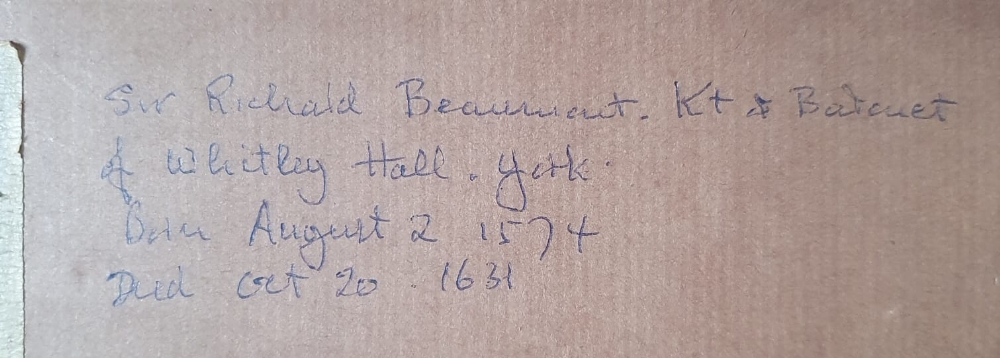 Sir Richard Beaumont. Kt & Baronet
of Whitley Hall. York.
Born August 2 1574
Died Oct 20. 1631